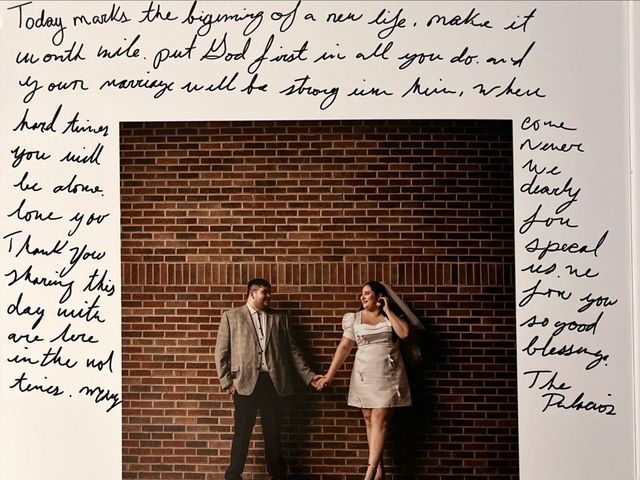 Today marks the bigining of a new life. make it
worth wile. put God first in all you do. and
your marriage will be strong in him, when
hard times come
you will never
be alone. we
love you dearly
Thank you for
sharing this special
day with us. we
are here for you
in the not so good
times. many blessings.
The
Palacios